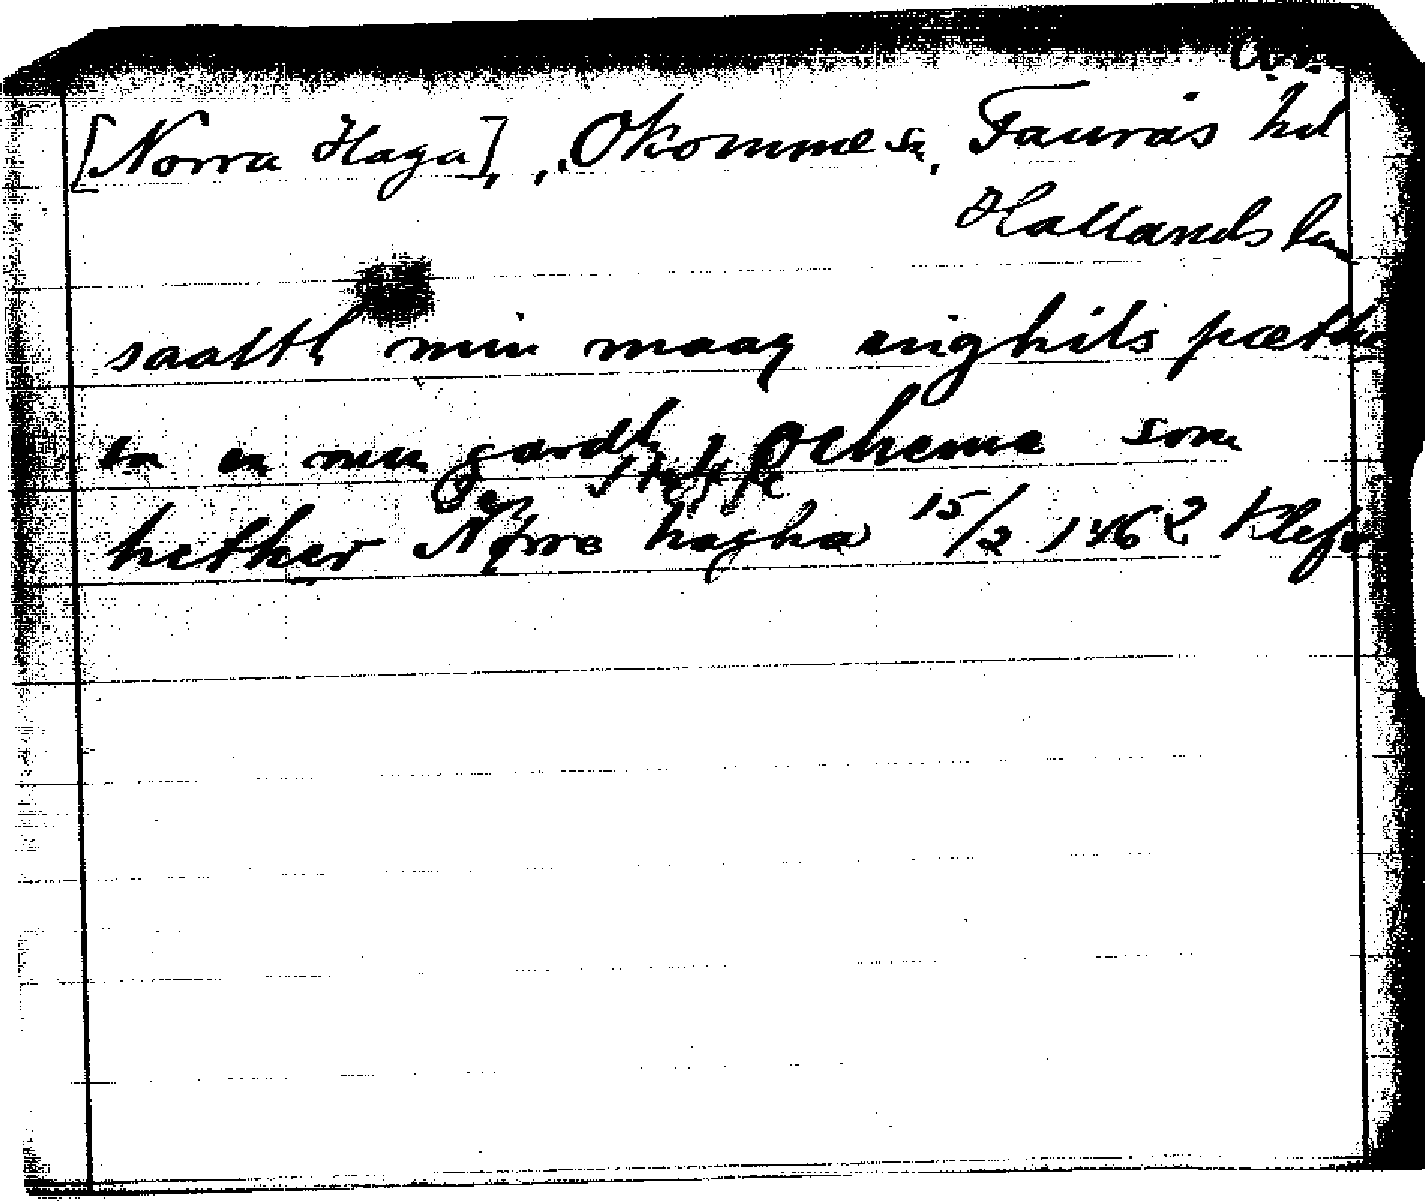 [Norra Haga], Okomme sn, Faurås hd
Hallands län
saalth min maag enghils pætther
en min gardh i Ocheme som
hether Nørre hagha 15/2 1462 Klef